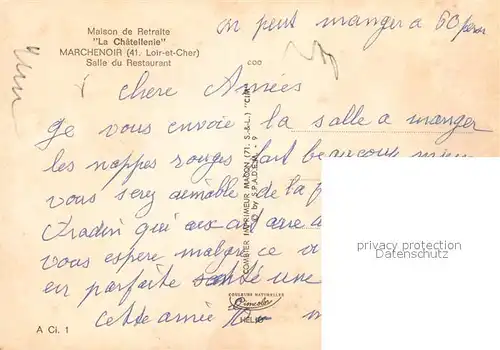 on peut manger a 60 pers
Maison de Retraite
"La Châtellenie"
MARCHENOIR (41. Loir-et-Cher)
Salle du Restaurant
COO
Chere Amies
Je vous envoie la salle a manger
les nappes rouges fait beaucoup mieux
vous serez aimable de la
qui
vous espere malgre ce
en parfaite santé une
cette amie
COMBIER IMPRIMEUR MACON (71. S.-&-L.) "CIM"
© by S.P.A.D.E.M. - 9
privacy protection
Datenschutz
COULEURS NATURELLES
Cimcolor
HELIO
A Ci. 1